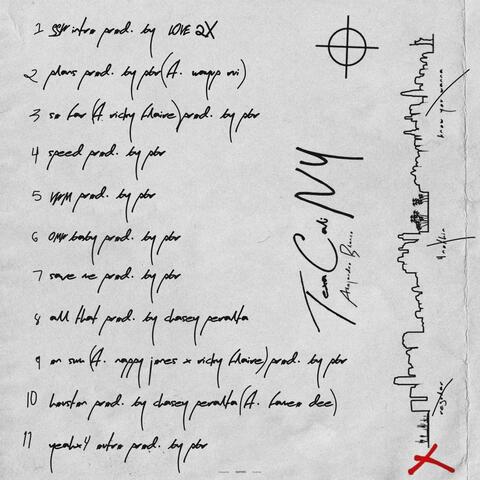 1 intro prod. by LOVE 2X
2 plans prod. by pbr (ft. wayup
3 so far (ft. vicky flaire) prod. by pbr
4 speed prod. by pbr
5 prod. by pbr
6 omw baby prod. by pbr
7 save me prod. by pbr
8 all that prod. by chasey peralta
9 on sum (ft. nappy jones x vicky flaire) prod. by pbr
10 houston prod. by chasey peralta (ft. dee)
11 yeahx4 outro prod. by pbr
Texa Cali NY
Alejandro
know you wanna
together
X